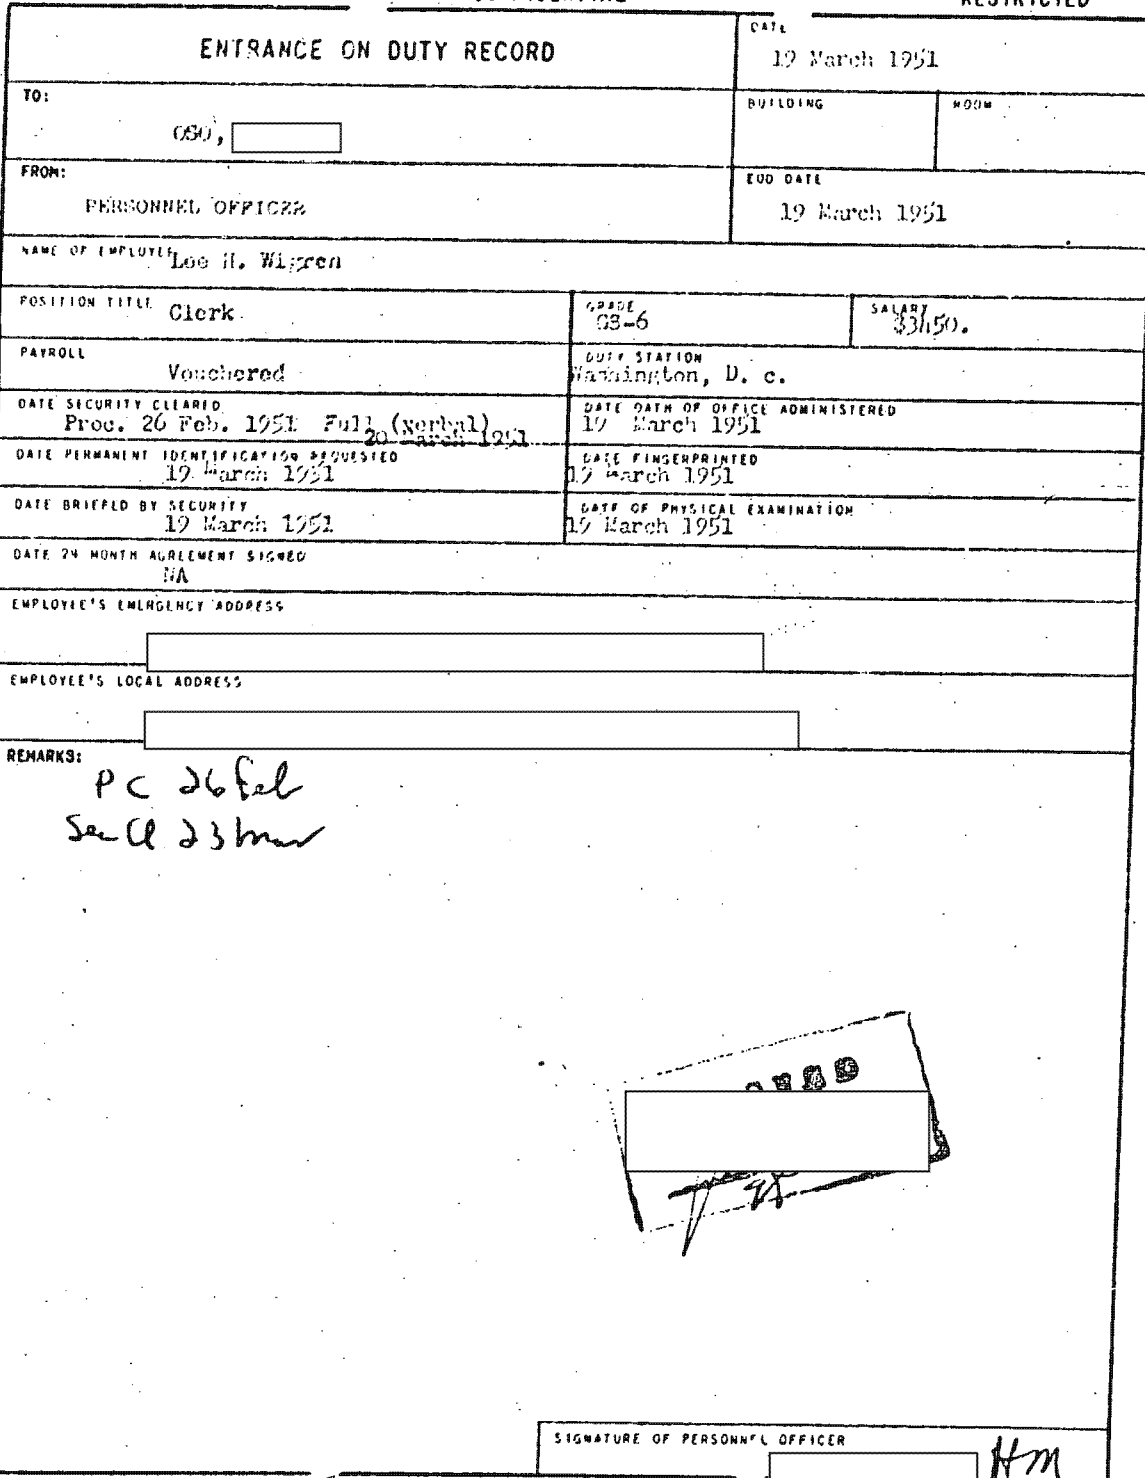 RESTRICTED
ENTRANCE ON DUTY RECORD
DATE
19 March 1951
TO:
OSO,
BUILDING
ROOM
FROM:
PERSONNEL OFFICER
EOD DATE
19 March 1951
NAME OF EMPLOYEE Lee H. Wigren
POSITION TITLE Clerk
GRADE
GS-6
SALARY
$3450.
PAYROLL
Vouchered
DUTY STATION
Washington, D. c.
DATE SECURITY CLEARED
Proc. 26 Feb. 1951 Full (verbal)
20 March 1951
DATE OATH OF OFFICE ADMINISTERED
19 March 1951
DATE PERMANENT IDENTIFICATION REQUESTED
19 March 1951
DATE FINGERPRINTED
19 March 1951
DATE BRIEFED BY SECURITY
19 March 1951
DATE OF PHYSICAL EXAMINATION
19 March 1951
DATE 24 MONTH AGREEMENT SIGNED
NA
EMPLOYEE'S EMERGENCY ADDRESS
EMPLOYEE'S LOCAL ADDRESS
REMARKS:
PC 26 Feb
Sec Cl 23 Mar
SIGNATURE OF PERSONNEL OFFICER
HM